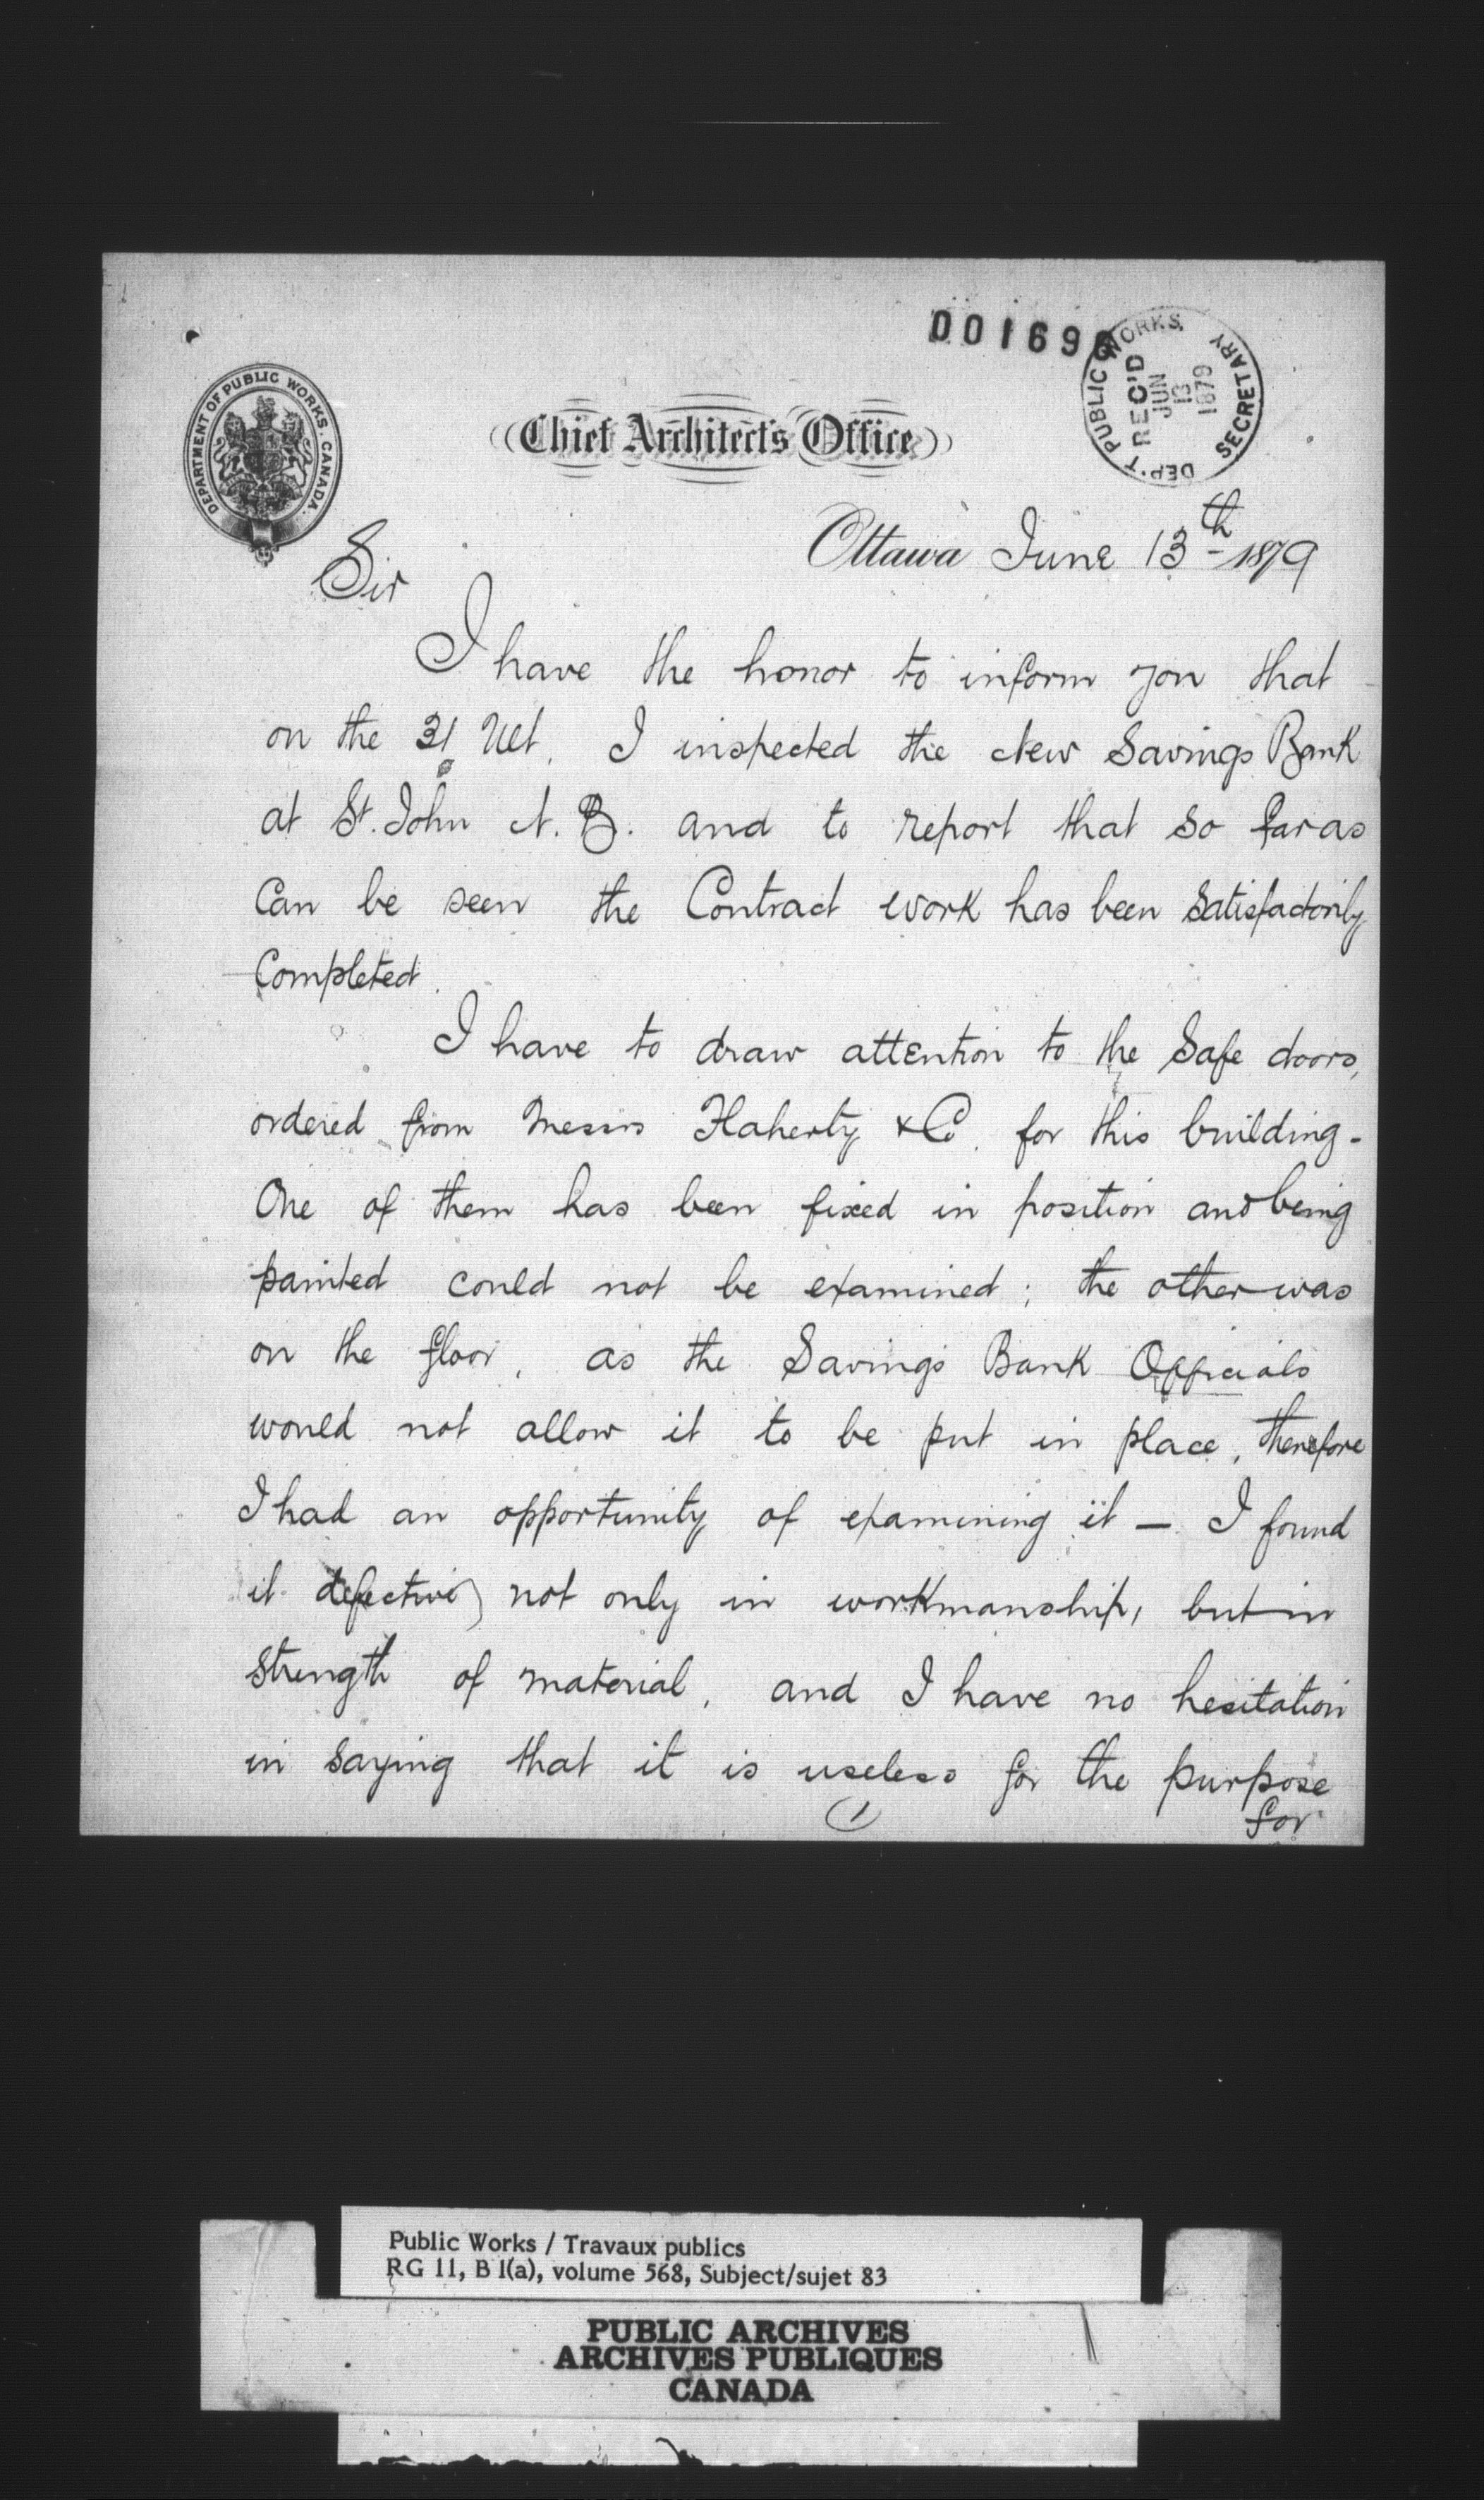 001698
DEP'T PUBLIC WORKS.
REC'D
JUN
13
1879
SECRETARY
DEPARTMENT OF PUBLIC WORKS. CANADA.
Chief Architect's Office
Ottawa June 13th 1879
Sir
I have the honor to inform you that
on the 31 Ult. I inspected the New Savings Bank
at St. John N. B. and to report that so far as
Can be seen the Contract work has been Satisfactorily
Completed.
I have to draw attention to the Safe doors,
ordered from Messrs Flaherty & Co. for this building -
One of them has been fixed in position and being
painted could not be examined; the other was
on the floor, as the Savings Bank Officials
would not allow it to be put in place, therefore
I had an opportunity of examining it — I found
it defective, not only in workmanship, but in
Strength of material, and I have no hesitation
in saying that it is useless for the purpose
(1)
for
Public Works / Travaux publics
RG 11, B 1(a), volume 568, Subject/sujet 83
PUBLIC ARCHIVES
ARCHIVES PUBLIQUES
CANADA